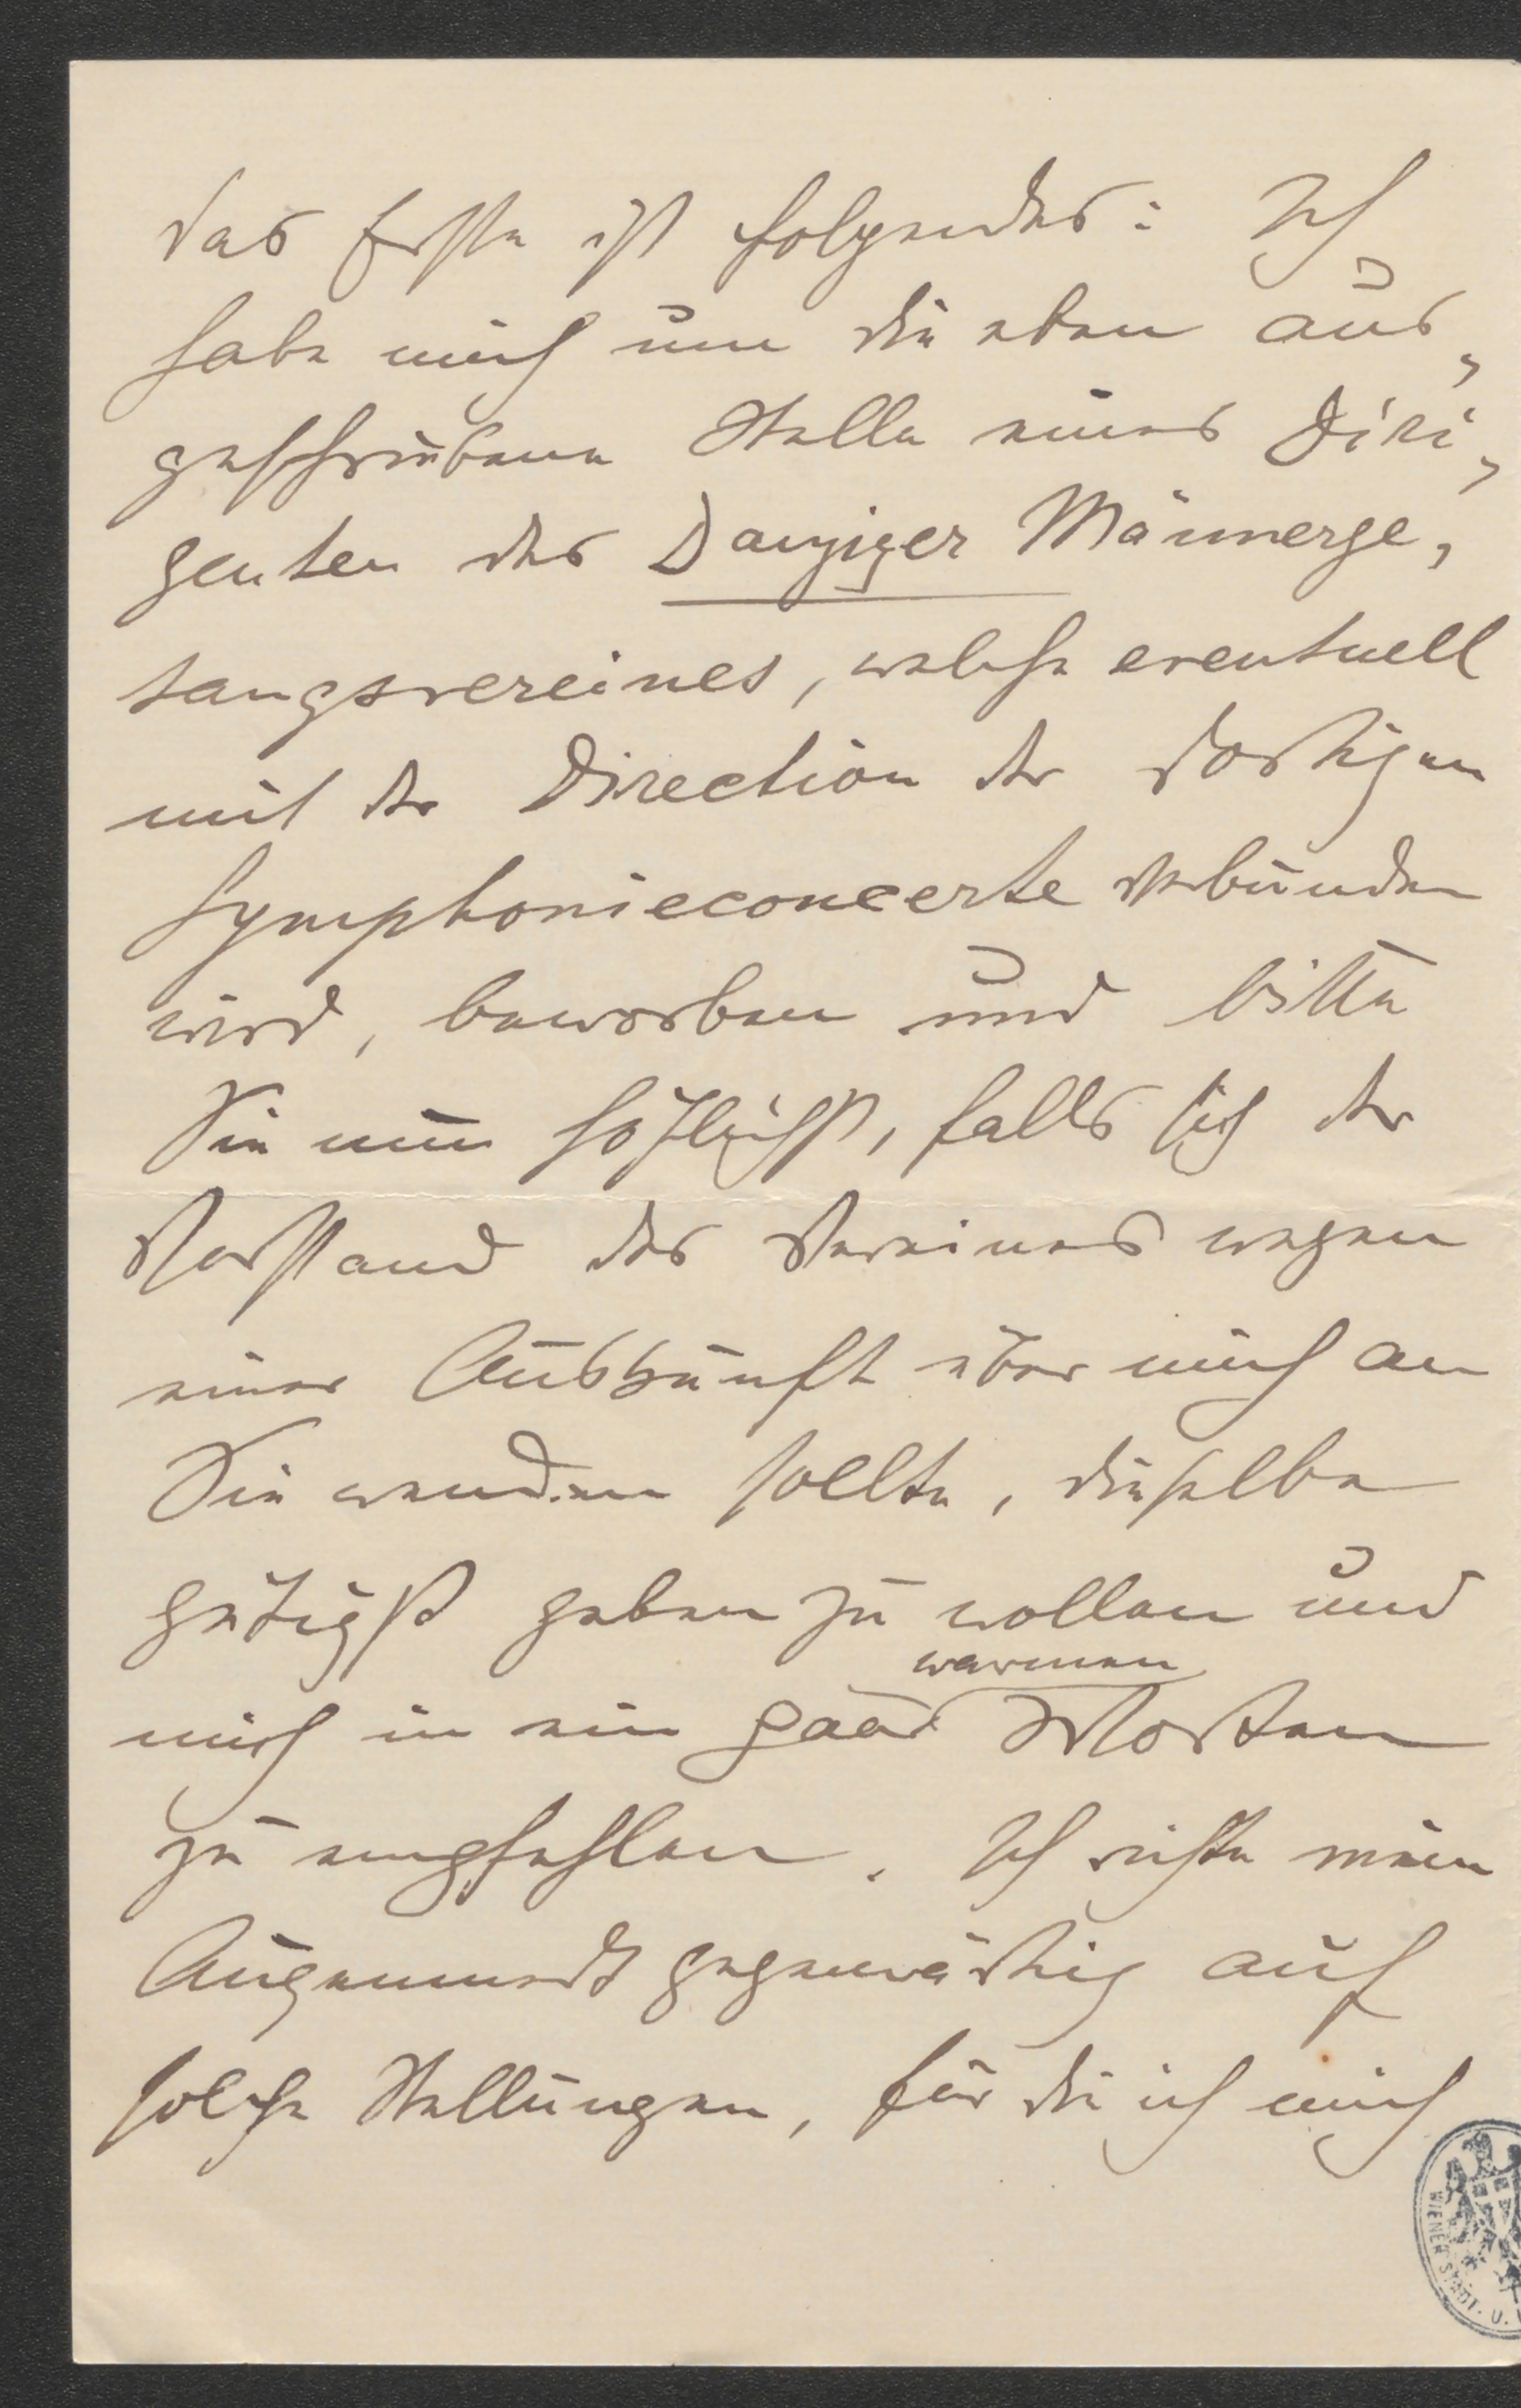 Das Erste ist folgendes: Ich
habe mich um die eben aus-
geschriebene Stelle eines Diri-
genten des Danziger Männerge-
sangsvereines, welche eventuell
mit der Direction der dortigen
Symphonieconcerte verbunden
wird, beworben und bitte
Sie nun höflichst, falls sich der
Vorstand des Vereines wegen
einer Auskunft über mich an
Sie wenden sollte, dieselbe
gütigst geben zu wollen und
warmen
mich in ein paar Worten
zu empfehlen. Ich richte mein
Augenmerk gegenwärtig auf
solche Stellungen, für die ich mich
WIENER STADT- U.